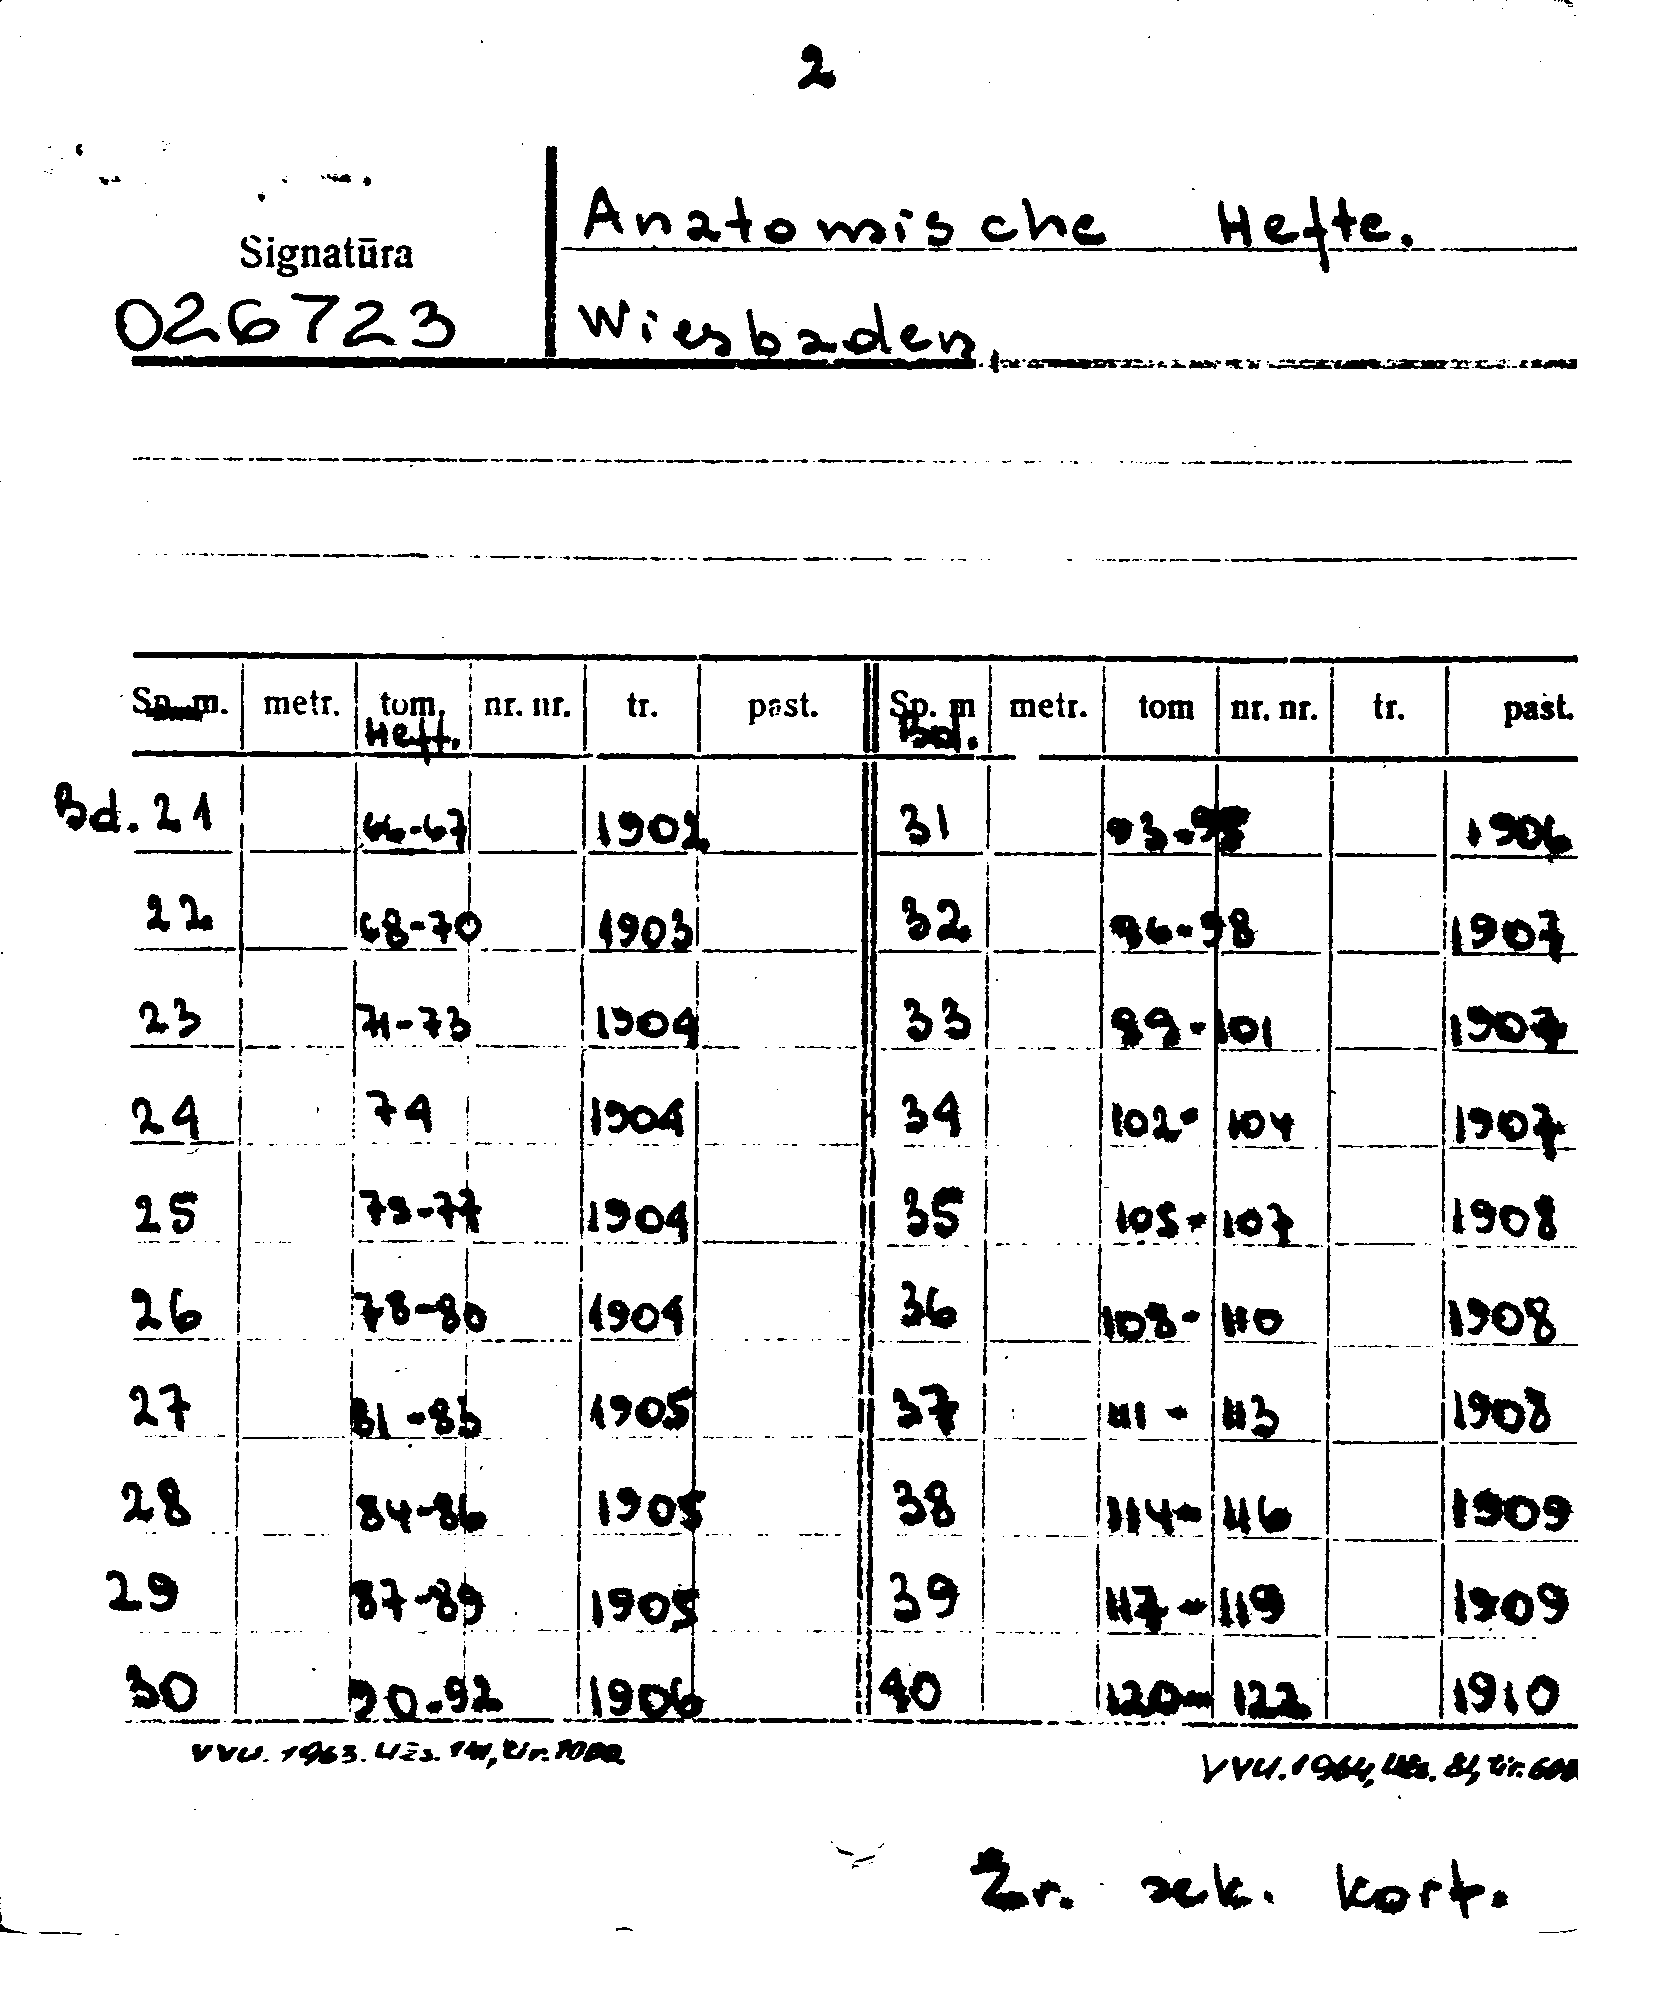 2
Anatomische Hefte.
Signatūra
026723
Wiesbaden,
Sp. m. metr. tom. nr. nr. tr. past. Sp. m metr. tom nr. nr. tr. past.
Heft. Bd.
Bd. 21 66-67 1902 31 93-95 1906
22 68-70 1903 32 96-98 1907
23 71-73 1904 33 99-101 1907
24 74 1904 34 102- 104 1907
25 75-77 1904 35 105- 107 1908
26 78-80 1904 36 108- 110 1908
27 81-83 1905 37 111- 113 1908
28 84-86 1905 38 114- 116 1909
29 87-89 1905 39 117- 119 1909
30 90-92 1906 40 120- 122 1910
VVU. 1963. Užs. 141, tir. 7000 VVU. 1964, Užs. 81, tir. 600
Žr. sek. kort.